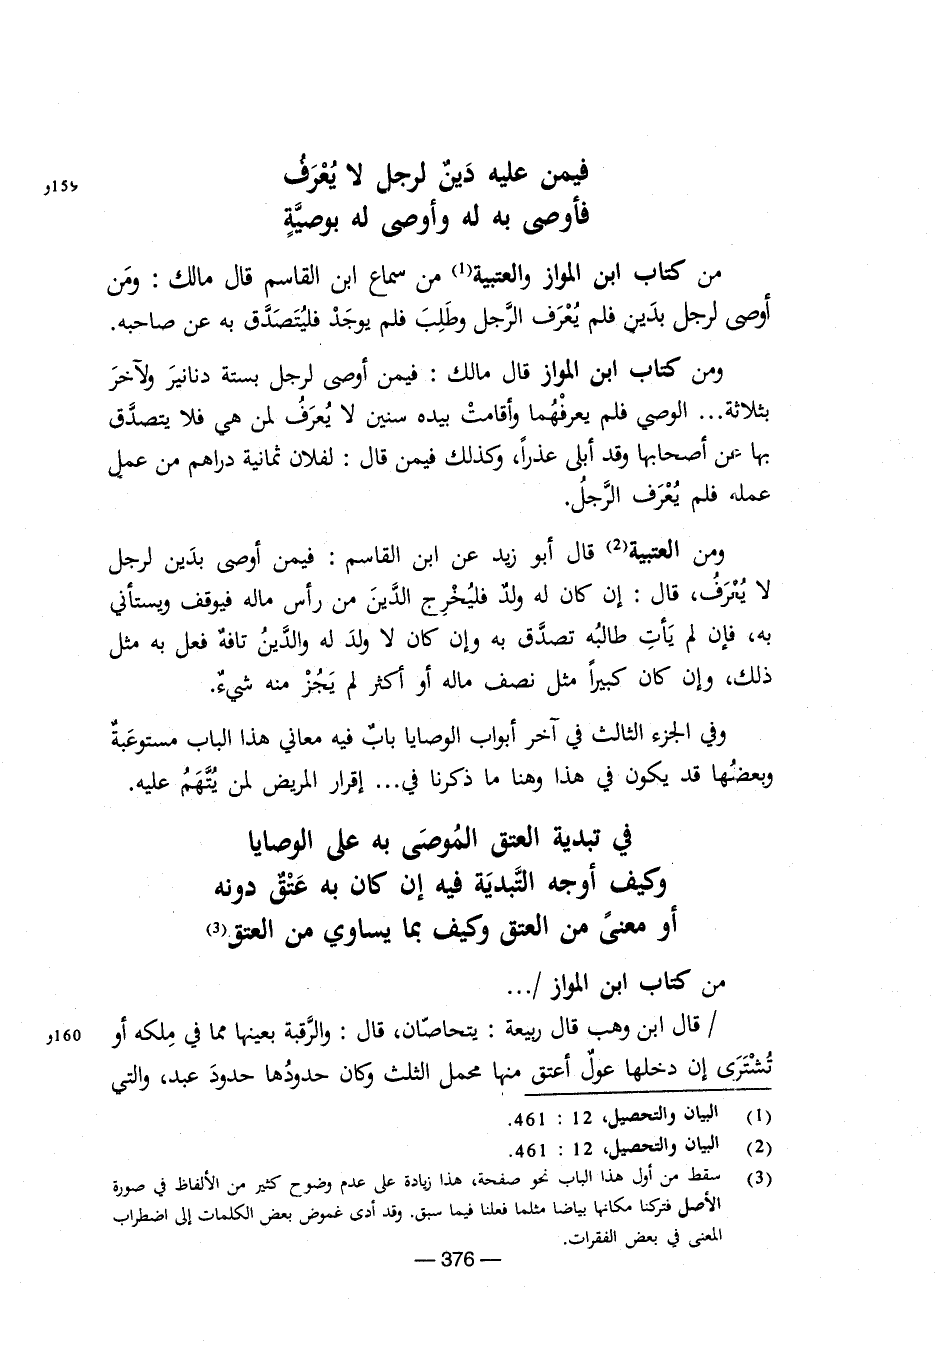 فيمن عليه دَينٌ لرجل لا يُعْرَفُ
159و
فأوصى به له وأوصى له بوصيَّةٍ
من كتاب ابن المواز والعتبية(1) من سماع ابن القاسم قال مالك : ومَن
أوصى لرجل بدَينٍ فلم يُعْرَف الرَّجل وطُلِبَ فلم يوجَدْ فليُتَصَدَّق به عن صاحبه.
ومن كتاب ابن المواز قال مالك : فيمن أوصى لرجل بستة دنانيرَ ولآخرَ
بثلاثة... الوصي فلم يعرفْهُما وأقامتْ بيده سنين لا يُعرَفُ لمن هي فلا يتصدَّق
بها عن أصحابها وقد أبلى عذراً، وكذلك فيمن قال : لفلان ثمانية دراهم من عمل
عمله فلم يُعْرَف الرَّجلُ.
ومن العتبية(2) قال أبو زيد عن ابن القاسم : فيمن أوصى بدَين لرجل
لا يُعْرَفُ، قال : إن كان له ولدٌ فليُخْرِج الدَّينَ من رأس ماله فيوقف ويستأني
به، فإن لم يَأتِ طالبُه تصدَّق به وإن كان لا ولدَ له والدَّينُ تافهٌ فعل به مثل
ذلك، وإن كان كبيراً مثل نصف ماله أو أكثر لم يَجُزْ منه شيءٌ.
وفي الجزء الثالث في آخر أبواب الوصايا بابٌ فيه معاني هذا الباب مستوعَبةٌ
وبعضُها قد يكون في هذا وهنا ما ذكرنا في... إقرار المريض لمن يُتَّهَمُ عليه.
في تبدية العتق المُوصَى به على الوصايا
وكيف أوجه التَّبديَة فيه إن كان به عَتْقٌ دونه
أو معنىً من العتق وكيف بما يساوي من العتق(3)
من كتاب ابن المواز /...
/ قال ابن وهب قال ربيعة : يتحاصّان، قال : والرَّقبة بعينها مما في مِلكه أو
160و
تُشْتَرَى إن دخلها عولٌ أعتق منها محمل الثلث وكان حدودُها حدودَ عبد، والتي
(1) البيان والتحصيل، 12 : 461.
(2) البيان والتحصيل، 12 : 461.
(3) سقط من أول هذا الباب نحو صفحة، هذا زيادة على عدم وضوح كثير من الألفاظ في صورة
الأصل فتركنا مكانها بياضا مثلما فعلنا فيما سبق. وقد أدى غموض بعض الكلمات إلى اضطراب
المعنى في بعض الفقرات.
— 376 —